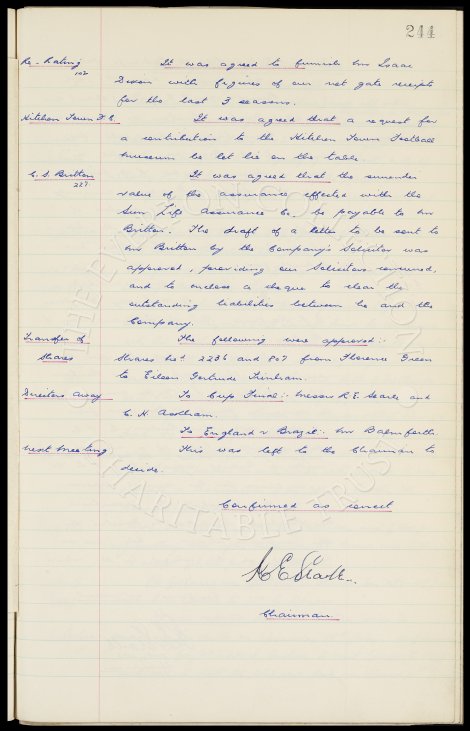 244
Re-Rating
102
It was agreed to furnish Mr Isaac
Dixon with figures of our net gate receipts
for the last 3 seasons.
Hitchin Town F.C.
It was agreed that a request for
a contribution to the Hitchin Town Football
museum be let lie on the table.
C. S. Britton
227.
It was agreed that the surrender
value of the assurance effected with the
Sun Life Assurance Co. be payable to Mr
Britton. The draft of a letter to be sent to
Mr Britton by the Company's Solicitor was
approved, providing our Solicitors concurred,
and to enclose a cheque to clear the
outstanding liabilities between he and the
Company.
Transfer of
Shares
The following were approved:-
Shares Nos. 2236 and 807 from Florence Green
to Eileen Gertrude
Directors Away
To Cup Final:- Messrs R.E. Searle and
C. H. Askham.
To England v Brazil:- Mr Balmforth.
Next Meeting
This was left to the Chairman to
decide.
Confirmed as correct
Chairman
THE EVERTON COLLECTION
CHARITABLE TRUST